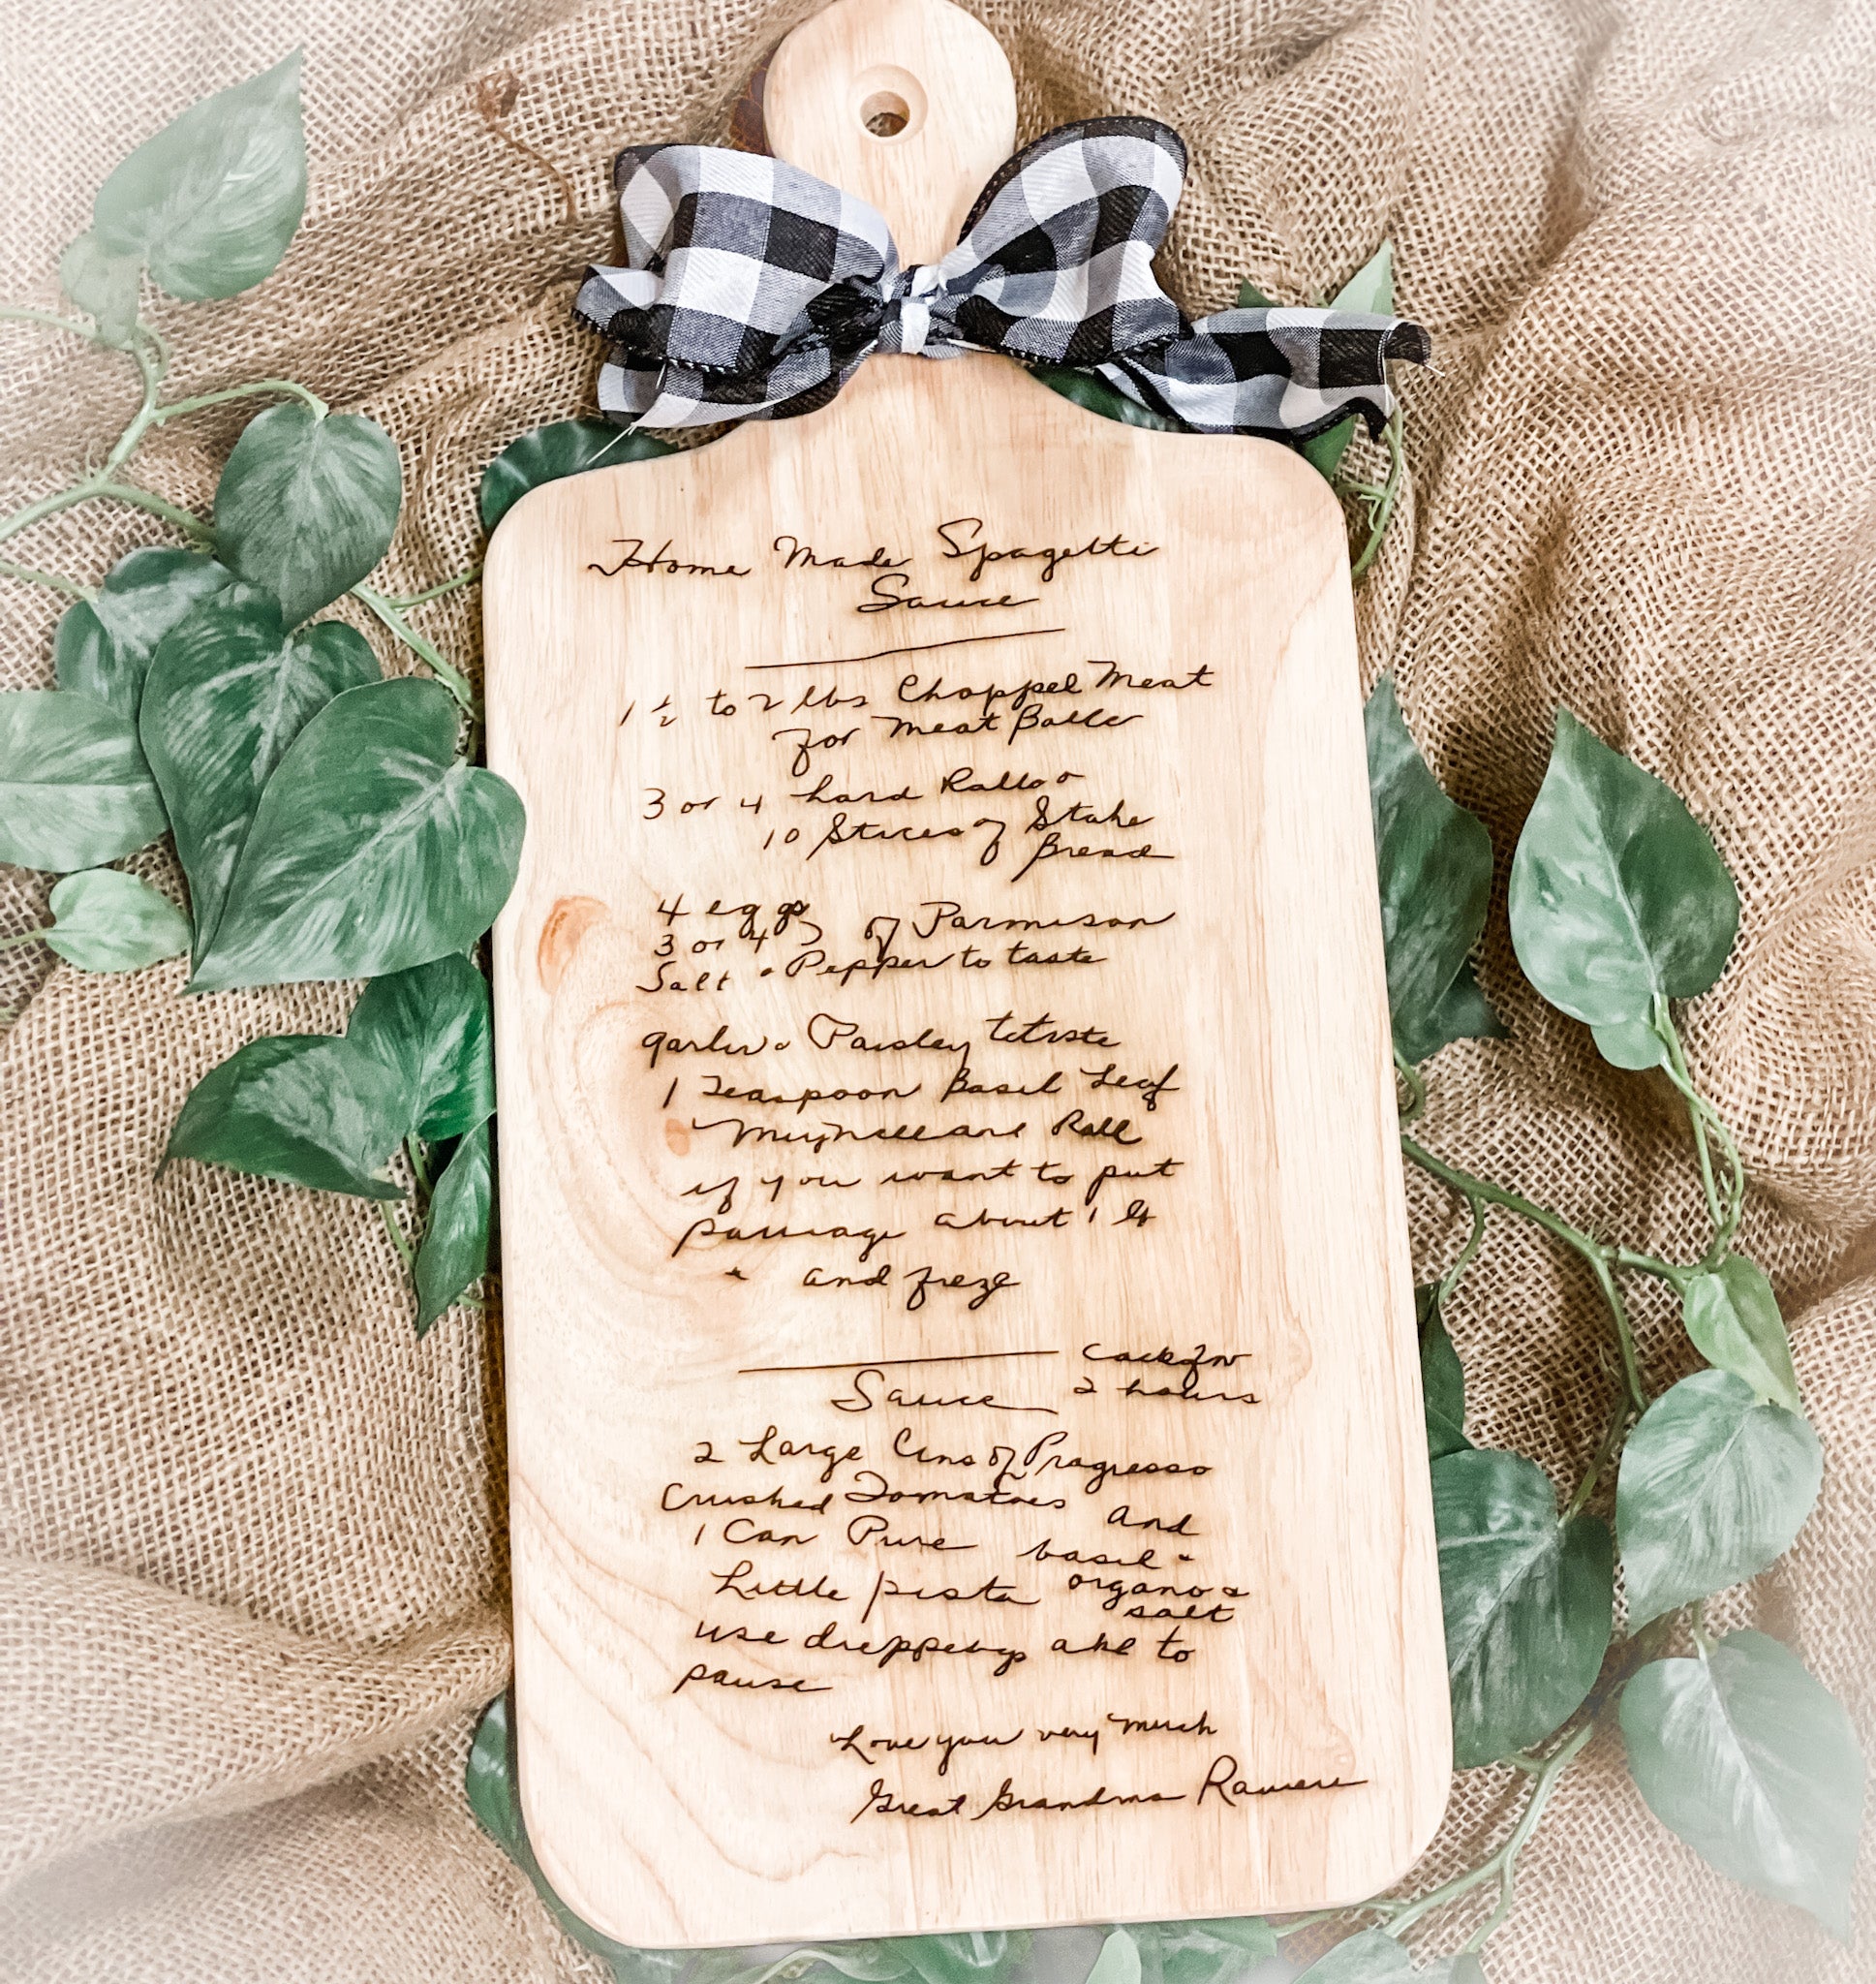 Home Made Spagetti
Sauce
1 ½ to 2 lbs Chopped Meat
for Meat Balls
3 or 4 hard Rolls or
10 Slices of Stale
Bread
4 eggs
3 or 4 of Parmison
Salt & Pepper to taste
garlic & Parsley to taste
1 Teaspoon Basil Leaf
Roll
if you want to put
sausage about 1 lb
and freze
Cook for
2 hours
Sauce
2 Large Cans of Progresso
Crushed Tomatoes
1 Can Pure and
basil &
Little pasta organo &
salt
use drippings add to
sause
Love you very Much
Great Grandma